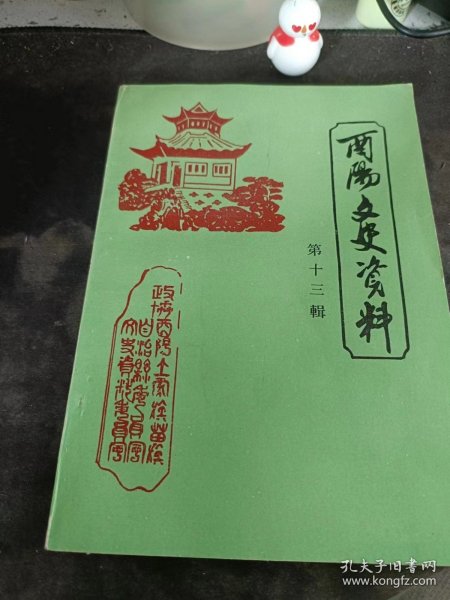 酉陽文史资料
第十三輯
政协酉陽土家族苗族
自治縣委員會
文史資料委員會
孔夫子旧书网
www.kongfz.com